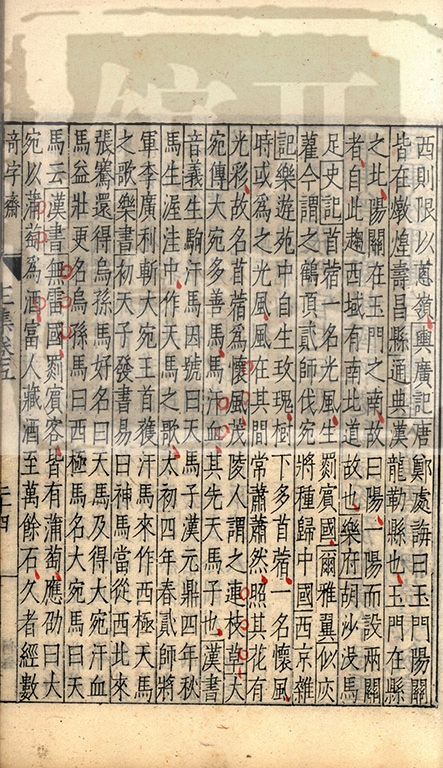 西則限以蔥嶺輿廣記唐鄭處誨曰玉門陽關
皆在燉煌壽昌縣通典漢龍勒縣也玉門在縣
之北陽關在玉門之南故曰陽一陽而設兩關
者自此趨西域有南北道故也樂府胡沙沒馬
足史記苜蓿一名光風生罽賓國爾雅翼似灰
藋今謂之鶴頂貳師伐宛將種歸中國西京雜
記樂遊苑中自生玫瑰樹下多苜蓿一名懷風
時或為之光風風在其間常蕭蕭然照其花有
光彩故名苜蓿為懷風茂陵人謂之連枝草大
宛傳大宛多善馬馬汗血其先天馬子也漢書
音義生駒汗馬因號曰天馬子漢元鼎四年秋
馬生渥洼中作天馬之歌太初四年春貳師將
軍李廣利斬大宛王首獲汗馬來作西極天馬
之歌樂書初天子發書易曰神馬當從西北來
張騫還得烏孫馬好名曰天馬及得大宛汗血
馬益壯更名烏孫馬曰西極馬名大宛馬曰天
馬云漢書無雷國罽賓客皆有蒲萄應劭曰大
宛以蒲萄為酒富人藏酒至萬餘石久者經數
奇字齋